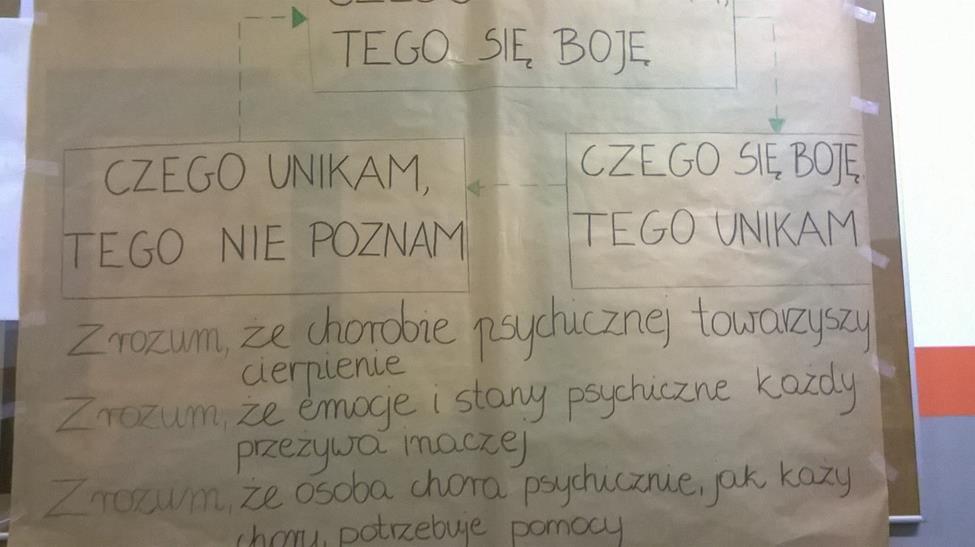 TEGO SIĘ BOJĘ
CZEGO UNIKAM,
TEGO NIE POZNAM
CZEGO SIĘ BOJĘ,
TEGO UNIKAM
Zrozum, że chorobie psychicznej towarzyszy
cierpienie
Zrozum, że emocje i stany psychiczne każdy
przeżywa inaczej
Zrozum, że osoba chora psychicznie, jak każy
chory, potrzebuje pomocy